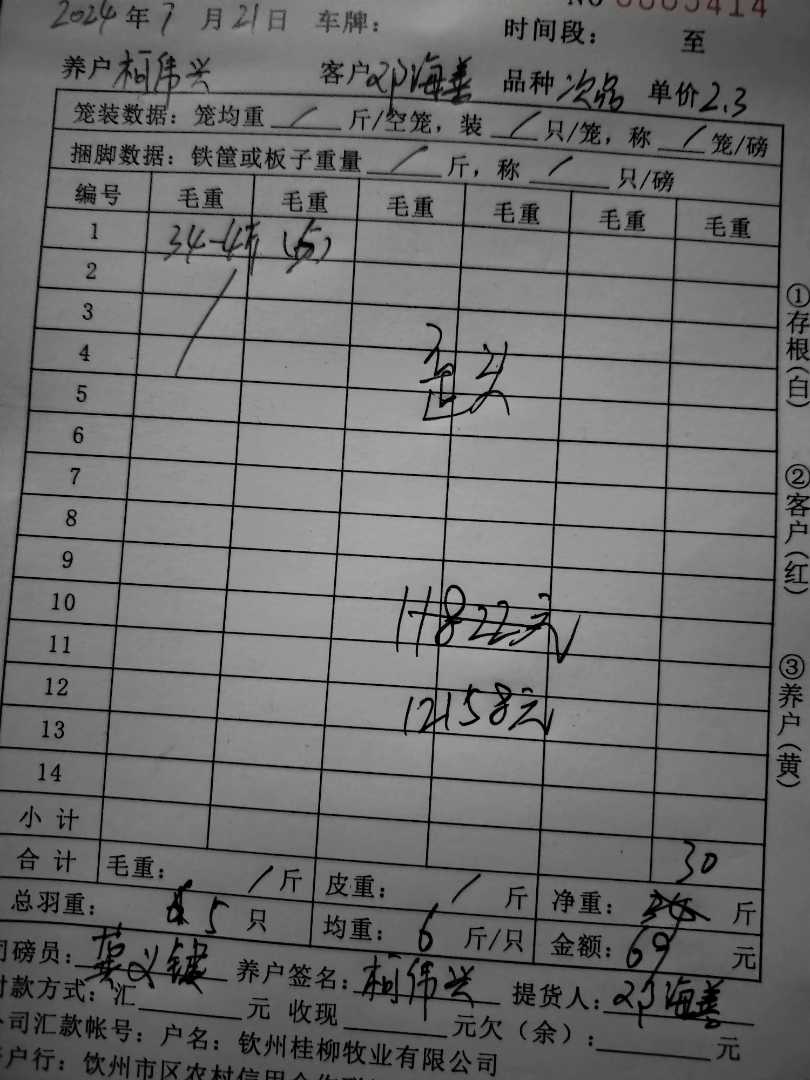 2024年7月21日 车牌：
NO 0005414
时间段： 至
养户 柯伟兴 客户 邓海善 品种 次品 单价 2.3
笼装数据：笼均重 / 斤/空笼，装 / 只/笼，称 / 笼/磅
捆脚数据：铁筐或板子重量 / 斤，称 / 只/磅
编号 毛重 毛重 毛重 毛重 毛重 毛重
1 34-4斤 (5)
2
3
4
5
6
7
8
9
10
11822元
11
12
12158元
13
14
小计
合计 毛重： / 斤 皮重： / 斤 净重： 30 斤
总羽重： 5 只 均重： 6 斤/只 金额： 69 元
司磅员： 养户签名： 柯伟兴 提货人： 邓海善
付款方式：汇 元 收现 元欠（余）： 元
公司汇款帐号：户名：钦州桂柳牧业有限公司
开户行：钦州市区农村信用合作联
①存根（白）
②客户（红）
③养户（黄）